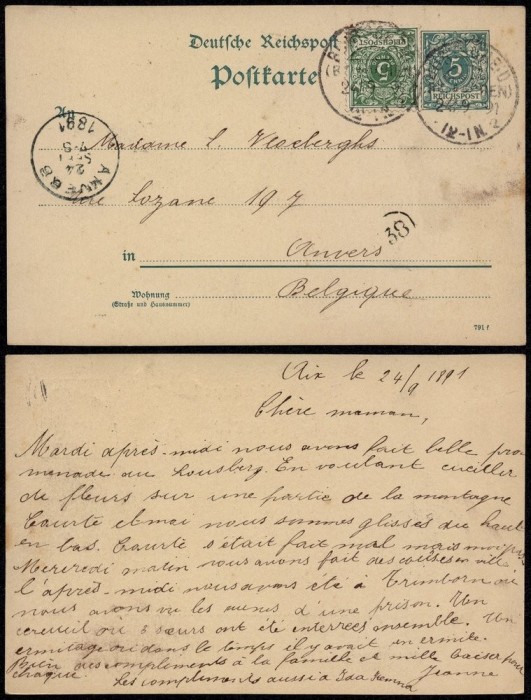 Deutsche Reichspost
Postkarte
5
REICHSPOST
5
REICHSPOST
ANVERS
24
SEPT
7-S
1891
An
Madame L. Vlosberghs
rue Lozane 197
38
in Anvers
Wohnung
(Straße und Hausnummer)
Belgique
791 f
Aix le 24/9 1891
Chère maman,
Mardi après-midi nous avons fait belle pro
menade au Lousberg. En voulant cueiller
de fleurs sur une partie de la montagne
et moi nous sommes glissés du haut
en bas. s'était fait mal mais moi pas
Mercredi matin nous avons fait des courses en ville
l'après-midi nous avons été à Trimborn où
nous avons vu les ruines d'une prison. Un
cercueil où 5 sœurs ont été interrées ensemble. Un
ermitage où dans le temps il y avait un ermite.
des compléments à la famille et mille baiser pour
chaque Jeanne
Les compléments aussi à Ida